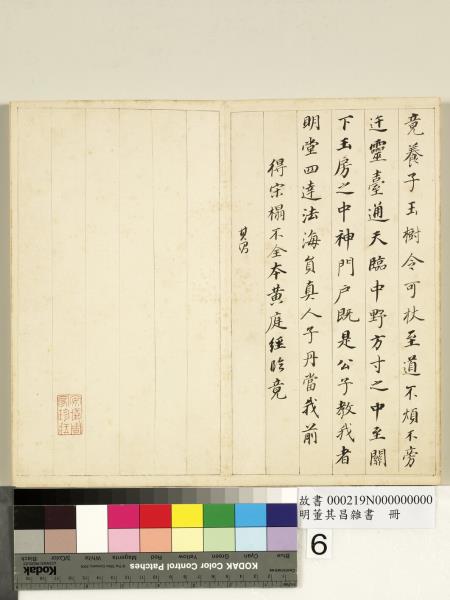 竟養子玉樹令可杖至道不煩不旁
迕靈臺通天臨中野方寸之中至關
下玉房之中神門戶既是公子教我者
明堂四達法海員真人子丹當我前
得宋榻不全本黃庭經臨竟
其昌
故書 000219N000000000
明董其昌雜書 冊
6
Blue
Cyan
Green
Yellow
Red
Magenta
White
3/Color
Black
Kodak
KODAK Color Control Patches